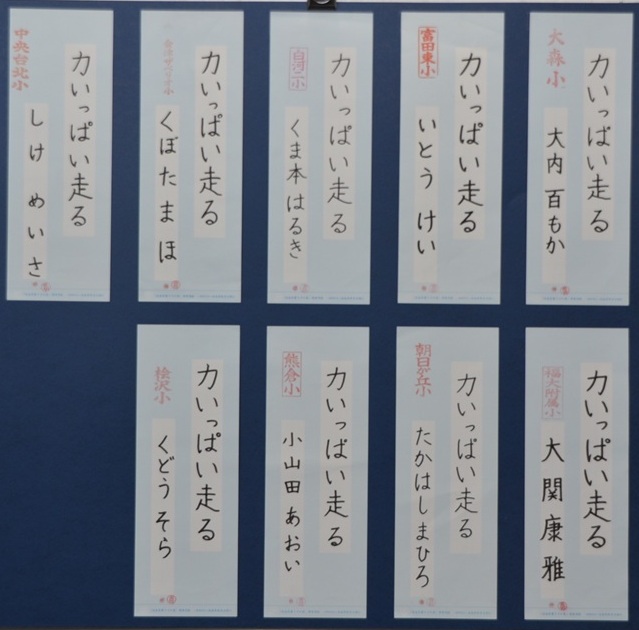 力いっぱい走る
大森小
大内百もか
力いっぱい走る
富田東小
いとう けい
力いっぱい走る
白河二小
くま本はるき
力いっぱい走る
くぼた まほ
力いっぱい走る
中央台北小
しけ めいさ
力いっぱい走る
福大附属小
大関康雅
力いっぱい走る
朝日が丘小
たかはしまひろ
力いっぱい走る
熊倉小
小山田あおい
力いっぱい走る
桧沢小
くどうそら